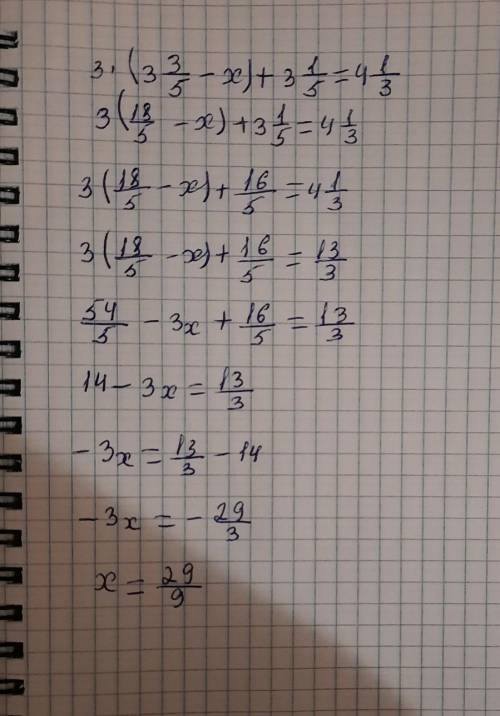 3·(3 3/5 − x) + 3 1/5 = 4 1/3
3(18/5 − x) + 3 1/5 = 4 1/3
3(18/5 − x) + 16/5 = 4 1/3
3(18/5 − x) + 16/5 = 13/3
54/5 − 3x + 16/5 = 13/3
14 − 3x = 13/3
− 3x = 13/3 − 14
− 3x = − 29/3
x = 29/9